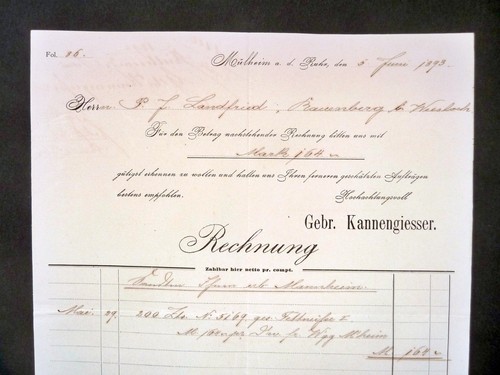 Fol. 86.
Mülheim a. d. Ruhr, den 5 Juni 1893.
Herrn P. J. Landfried, Rauenberg b. Wiesloch
Für den Betrag nachstehender Rechnung bitten uns mit
Mark 164.-
gütigst erkennen zu wollen und halten uns Ihren ferneren geschätzten Aufträgen
bestens empfohlen. Hochachtungsvoll
Gebr. Kannengiesser.
Rechnung
Zahlbar hier netto pr. compt.
Sandten Ihnen ab Mannheim
Mai 29. 200 Ztr. N. 5169 gew.
M. fr. Wgg Mheim
M 164.-